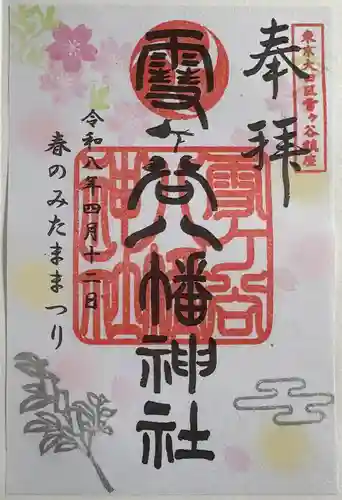 東京大田区雪ヶ谷鎮座
奉拝
雪ヶ谷八幡神社
雪ヶ谷八幡神社
令和八年四月十二日
春のみたままつり